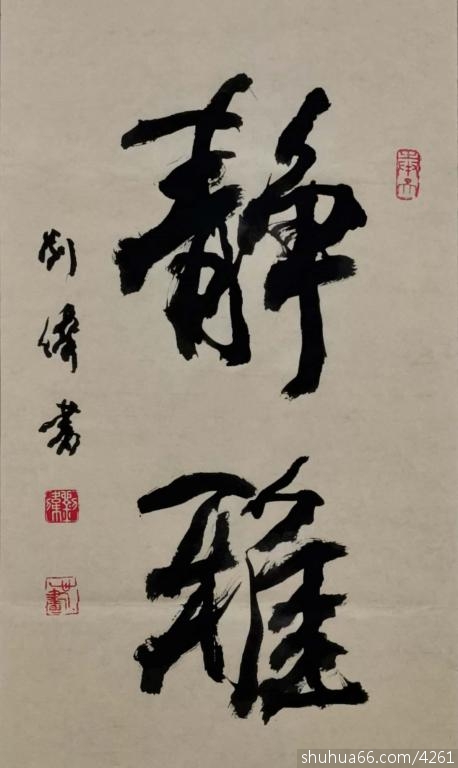 靜雅
刘偉書
shuhua66.com/4261